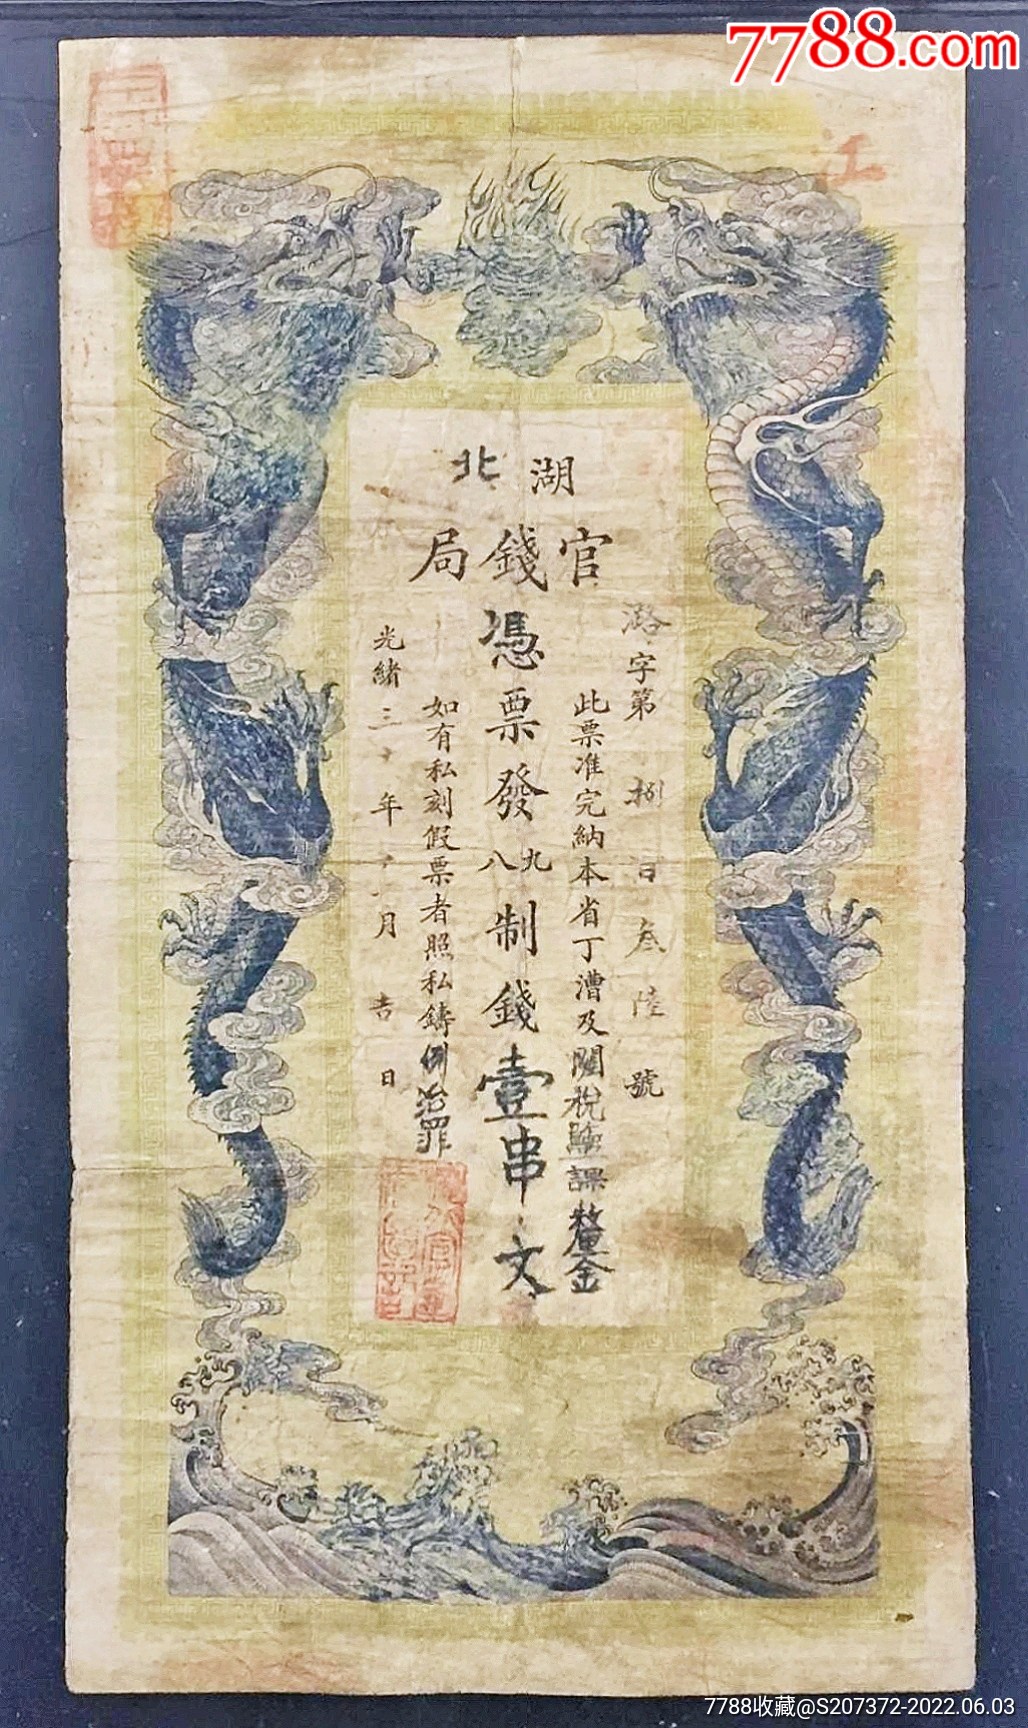 7788.com
江
湖北
官錢局
潞字第捌百叁陸號
此票准完納本省丁漕及關稅鹽課釐金
憑票發九八制錢壹串文
如有私刻假票者照私鑄例治罪
光緒三十年月吉日
7788收藏@S207372-2022.06.03